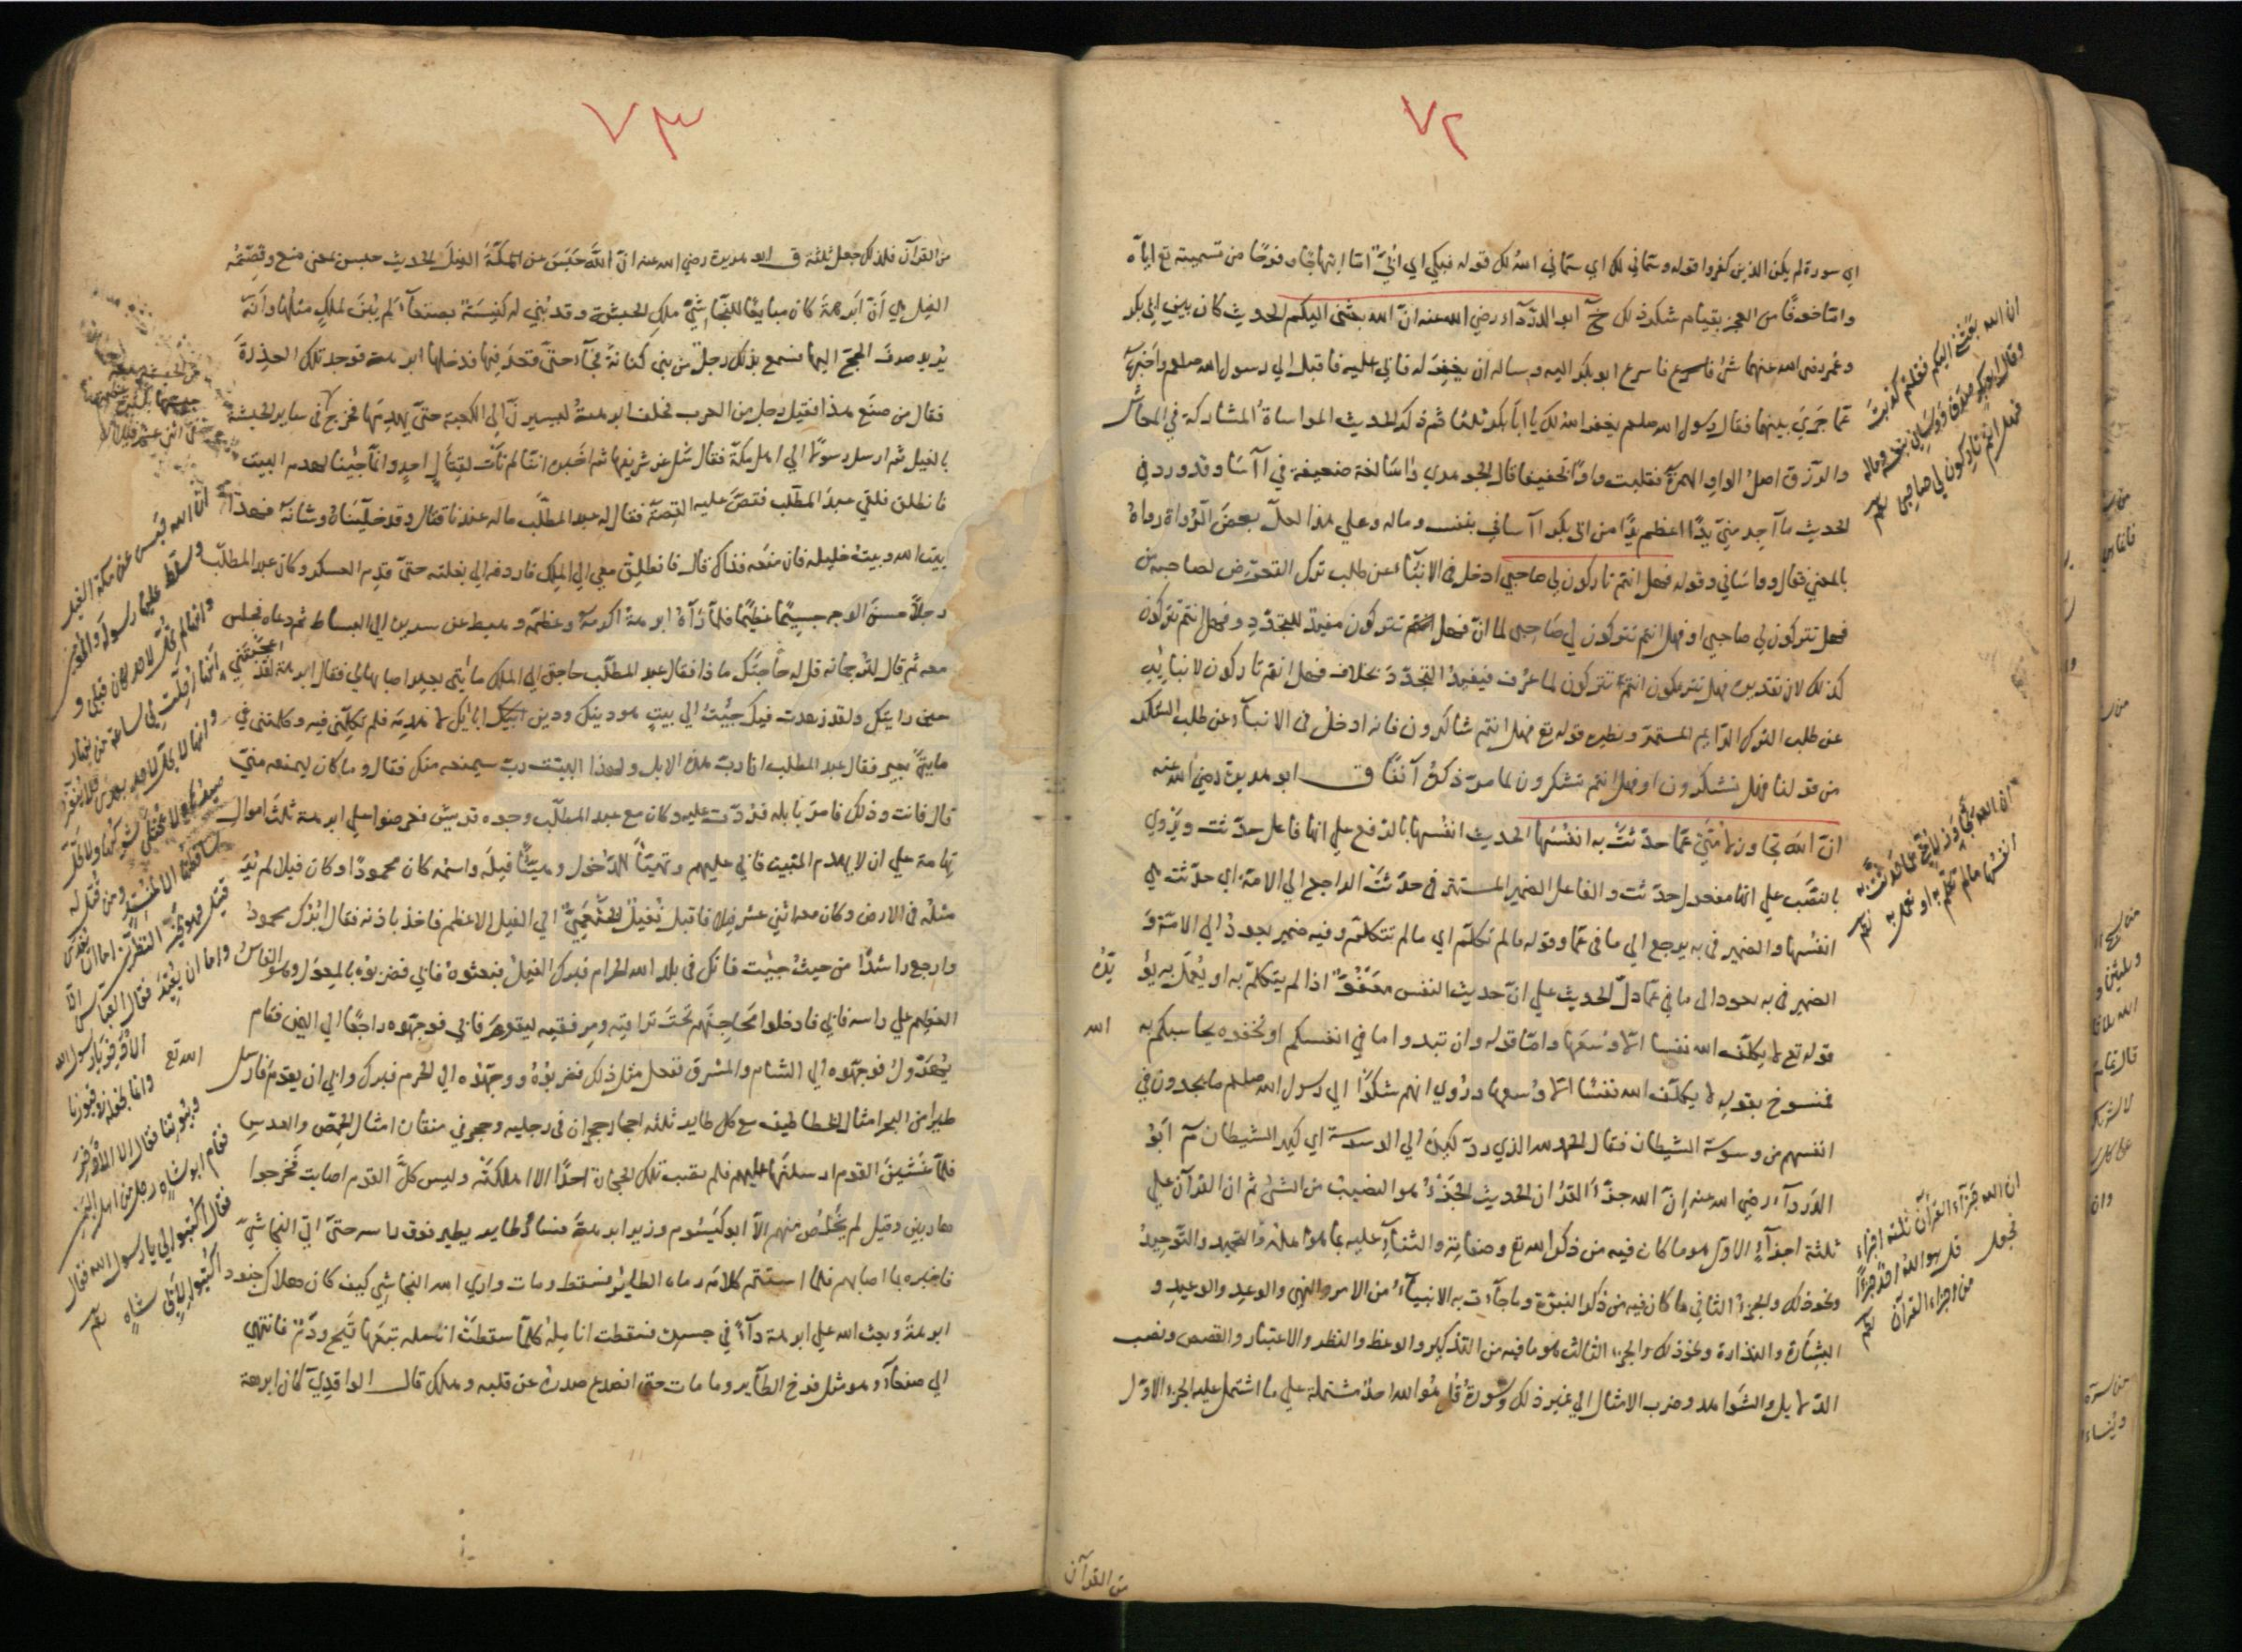 ٧٢
اي سورة لم يكن الذين كفروا قوله وسماني لك اي سماني الله لك قوله فبكي اي ابيّ امّا ابتهاجًا وفرحًا من تسميته تع اياه
وامّا خوفًا من العجز بقيام شكر ذلك خ ابو الدرداء رضي الله عنه انّ الله بعثني اليكم الحديث كان بين ابي بكر
وعمر رضي الله عنهما شئ فاسرع ابو بكر اليه وساله ان يغفر له فابي عليه فاقبل الي رسول الله صلعم واخبره
عمّا جري بينهما فقال رسول الله صلعم يغفر الله لك يا ابا بكر ثلثا ثم ذكر الحديث المواساة المشاركة في المعاش
والرزق اصل الواو الهمزة فقلبت واوًا تخفيفا قال الجوهري واسا لغة ضعيفة في آسا وقد ورد في
الحديث ما احد منّي يدًا اعظم يدًا من ابي بكر آساني بنفسه وماله وعلي هذا لعلّ بعض الرواة رواه
بالمعني فقال وواساني وقوله فهل انتم تاركون لي صاحبي ادخل في الانباء عن طلب ترك التعرّض لصاحبه من
فهل تتركون لي صاحبي او فهل انتم تتركون لي صاحبي لما انّ فهل انتم تتركون مفيد للتجدد وفهل انتم تتركون
كذلك لان تقديره فهل تتركون انتم تتركون لما عرف فيفيد التجدّد بخلاف فهل انتم تاركون لانبائه
عن طلب الترك الدايم المستمر ونظيره قوله تع فهل انتم شاكرون فانه ادخل في الانباء عن طلب الشكر
من قولنا فهل تشكرون او فهل انتم تشكرون لما مرّ ذكره آنفًا ق ابو هريرة رضي الله عنه
انّ الله تجاوز لامّتي عمّا حدّثت به انفسها الحديث انفسها بالرفع علي انها فاعل حدّثت ويروي
بالنصب علي انها مفعول حدّثت والفاعل الضمير المستتر في حدّثت الراجع الي الامّة اي حدّثت هي
انفسها والضمير في به يرجع الي ما في عمّا وقوله ما لم تكلّم اي ما لم تتكلّم وفيه ضمير يعود الي الامّة و
الضمير في به يعود الي ما في عمّا دلّ الحديث علي انّ حديث النفس معفوّ اذا لم يتكلّم به او يعمل به يؤ
يّده
قوله تع لا يكلّف الله نفسا الّا وسعها وامّا قوله وان تبدوا ما في انفسكم او تخفوه يحاسبكم به
الله
فمنسوخ بقوله لا يكلّف الله نفسًا الّا وسعها وروي انهم شكوا الي رسول الله صلعم ما يجدون في
انفسهم من وسوسة الشيطان فقال الحمد لله الذي ردّ كيده الي الوسوسة اي كيد الشيطان م ابو
الدرداء رضي الله عنه انّ الله جزّأ القرآن الحديث الجزء هو النصيب من الشئ ثم ان القرآن علي
ثلثة اجزاء الاول هو ما كان فيه من ذكر الله تع وصفاته والثناء عليه بما هو اهله والتمجيد والتوحيد
ونحو ذلك والجزء الثاني ما كان فيه من ذكر النبوّة وما جاءت به الانبياء من الامر والنهي والوعد والوعيد و
البشارة والنذارة ونحو ذلك والجزء الثالث هو ما فيه من التذكير والوعظ والنظر والاعتبار والقصص ونصب
الدلايل والشواهد وضرب الامثال الي غير ذلك وسورة قل هو الله احد مشتملة علي ما اشتمل عليه الجزء الاول
من القرآن
ان الله بعثني اليكم فقلتم كذبت
وقال ابو بكر صدق وواساني بنفسه وماله
فهل انتم تاركون لي صاحبي
ان الله تجاوز لامتي عما حدثت به
انفسها ما لم تتكلم به او تعمل به
ان الله جزأ القرآن ثلثة اجزاء
فجعل قل هو الله احد جزءًا
من اجزاء القرآن
٧٣
من القرآن فلذلك جعل ثلثة ق ابو هريرة رضي الله عنه انّ الله حبس عن مكّة الفيل الحديث حبس بمعني منع وقصّة
الفيل هي انّ ابرهة كان مبايعًا للنجاشيّ ملك الحبشة وقد بني له كنيسة بصنعاء لم يبن لملك مثلها وانه
يريد صرف الحجّ اليها فسمع بذلك رجل من بني كنانة فجاء حتى قعد فيها فدخلها ابرهة فوجد تلك العذرة
فقال من صنع هذا فقيل رجل من العرب فحلف ابرهة ليسيرنّ الي الكعبة حتي يهدمها فخرج في ساير الحبشة
بالفيل ثم ارسل رسولًا الي اهل مكّة فقال سل عن شريفها ثم اخبره انّا لم نأت لقتال احد وانّما جئنا لهدم البيت
فانطلق فلقي عبد المطّلب فقصّ عليه القصّة فقال له عبد المطّلب ماله عندنا قتال وقد خلّيناه وشانه فهذا
بيت الله وبيت خليله فان منعه فذاك قال فانطلق معي الي الملك فاردفه الي بغلته حتي قدم العسكر وكان عبد المطلب
رجلًا حسن الوجه جسيمًا عظيمًا فلمّا رآه ابرهة اكرمه وعظّمه وهبط عن سريره الي البساط ثم دعاه فجلس
معه ثم قال لترجمانه قل له حاجتك ماذا فقال عبد المطّلب حاجتي الي الملك مأتي بعير اصابها لي فقال ابرهة لقد
اعجبتني
حين رايتك ولقد زهدت فيك جئت الي بيت هو دينك ودين آبائك لاهدمه فلم تكلّمني فيه وكلّمتني في
مايتي بعير فقال عبد المطلب انا ربّ هذه الابل ولهذا البيت ربّ سيمنعه منك فقال وما كان ليمنعه منّي
قال فانت وذلك فامر بابله فردّت عليه وكان مع عبد المطلب وجوه قريش فعرضوا علي ابرهة ثلث اموال
تهامة علي ان لا يهدم البيت فابي عليهم وتهيّأ للدخول وهيّأ فيله واسمه كان محمودًا وكان فيلا لم ير
مثله في الارض وكان معه اثني عشر فيلا فاقبل نفيل الخثعميّ الي الفيل الاعظم فاخذ باذنه فقال ابرك محمود
وارجع راشدًا من حيث جئت فانك في بلد الله الحرام فبرك الفيل فبعثوه فابي فضربوه بالمعول وهو الفاس
العظيم علي راسه فابي فادخلوا محاجنهم تحت تراقيه ومرفقيه ليقوم فابي فوجّهوه راجعًا الي اليمن فقام
يهرول فوجّهوه الي الشام والمشرق ففعل مثل ذلك فضربوه ووجّهوه الي الحرم فبرك وابي ان يقوم فارسل
الله تع
طيرا من البحر امثال الخطاطيف مع كل طاير ثلثه احجار حجران في رجليه وحجر في منقاره امثال الحمص والعدس
فلمّا غشين القوم ارسلنها عليهم فلم يصب تلك الحجارة احدًا الا اهلكته وليس كلّ القوم اصابت فخرجوا
هاربين وقيل لم يخلص منهم الّا ابو كيسوم وزير ابرهة فسار وطاير يطير فوق راسه حتي اتي النجاشيّ
فاخبره بما اصابهم فلما استتم كلامه رماه الطاير فسقط ومات واري الله النجاشي كيف كان هلاك جنود
ابرهة وبعث الله علي ابرهة داءً في جسده فسقطت انامله كلّما سقطت انمله تبعها قيح ودم فانتهي
الي صنعاء وهو مثل فرخ الطاير وما مات حتي انصدع صدره عن قلبه وهلك قال الواقدي كان ابرهة
ان الله حبس عن مكة الفيل
وسلّط عليها رسوله والمؤمنين
وانها لم تحل لاحد كان قبلي و
انما احلت لي ساعة من نهار
وانها لا تحل لاحد بعدي فلا ينفّر
صيدها ولا يختلي شوكها ولا تحل
ساقطتها الا لمنشد ومن قتل له
قتيل فهو بخير النظرين اما ان يفدي
واما ان يقيد فقال العباس الا
الاذخر يا رسول الله فانا نجعله في قبورنا
وبيوتنا فقال الا الاذخر
فقام ابو شاه رجل من اهل اليمن
فقال اكتبوا لي يا رسول الله فقال
اكتبوا لابي شاه